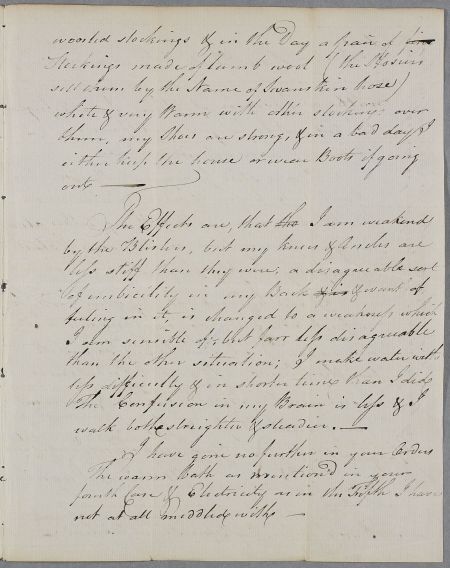 woosted stockings & in the Day a pair of fine
Stockings made of Lamb wool (the Hosiers
sell them by the Name of Swanskin hose)
white & very Warm with other stockings over
them, my Shoes are strong, & in a bad day I
either keep the house or wear Boots if going
out
The Effects are, that the I am weakend
by the Blisters, but my knees & Ancles are
less stiff than they were, a disagreeable sort
of imbicility in my Back & want of
feeling in it, is changed to a weakness which
I am sensible of, but farr less disagreeable
than the other situation; I make water with
less difficulty & in shorter time than I did
The Confusion in my Brain is less & I
walk both streighter & steadier.
I have gone no further in your Orders
The warm Bath as mention'd in your
fourth Case & Electricity as in the Fifth I have
not at all meddled with